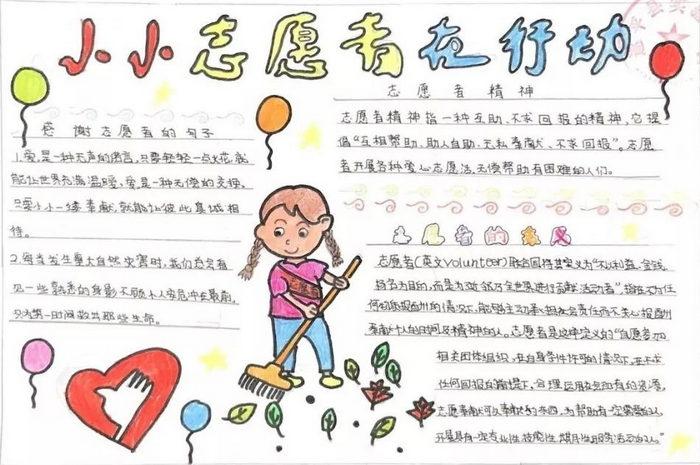 小小志愿者在行动
感谢志愿者的句子
1.爱,是一种无声的语言,只要轻轻一点火花,就
能让世界充满温暖,爱是一种无价的交换,
只要小小一缕奉献,就能让彼此真诚相
待。
2.每当发生重大自然灾害时,我们总会看
见一些熟悉的身影不顾个人安危冲在最前,
只为第一时间救出那些生命。
志愿者精神
志愿者精神指一种互助、不求回报的精神,它提
倡“互相帮助、助人自助、无私奉献、不求回报”。志愿
者开展各种爱心志愿活,无偿帮助有困难的人们。
志愿者的
志愿者(英文Volunteer)联合国将其定义为“不以利益、金钱、
扬名为目的,而是为
何
奉献个人的时间及精神的人。志愿者是这样定义的“自愿参加
相关团体组织,在自身条件许可的情况下,在不求
任何回报的前提下,合理运用
志愿奉献可以奉献的东西,为帮助有一定需要的人,
开展具有一定专业性、技能性、服务活动的人。”
志愿者